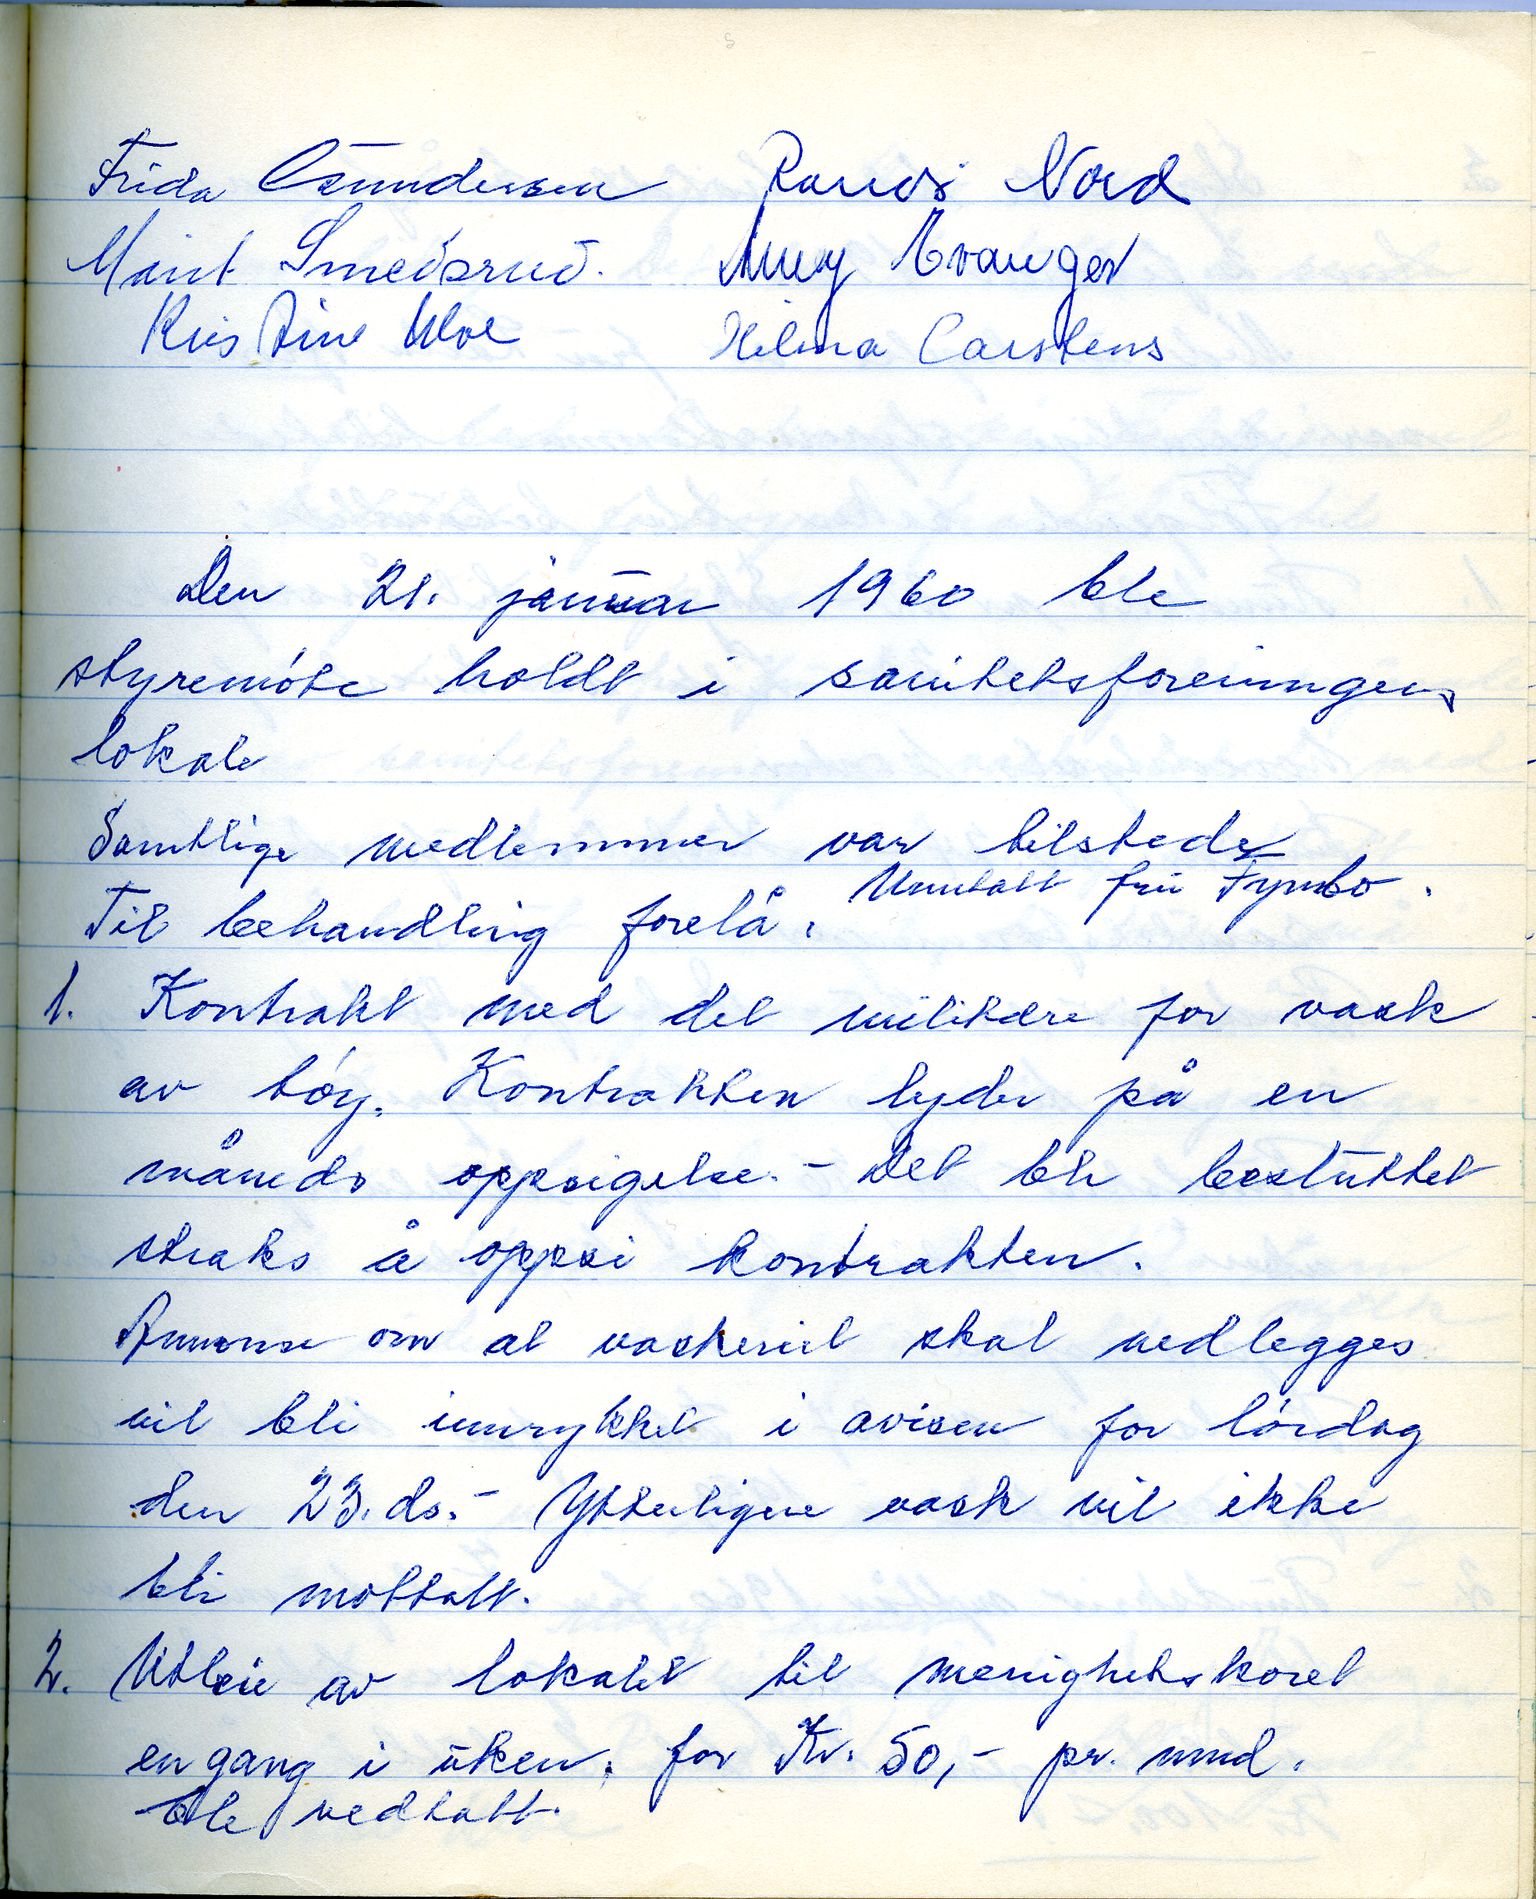 Frida Gundersen Randi Nord
Marit Smedsrud. Amey Evanger
Kristine Moe Helma Carstens
Den 21. januar 1960 ble
styremöte holdt i sanitetsforeningens
lokale
Samtlige medlemmer var tilstede
Unntatt fru Fymbo.
Til behandling forelå:
1. Kontrakt med det militære for vask
av töy. Kontrakten lyder på en
måneds oppsigelse. - Det ble besluttet
straks å oppsi kontrakten.
Annonse om at vaskeriet skal nedlegges
vil bli innrykket i avisen for lördag
den 23. ds. - Ytterligere vask vil ikke
bli mottatt.
2. Utleie av lokalet til menighetskoret
en gang i uken, for Kr. 50,- pr. mnd.
ble vedtatt.